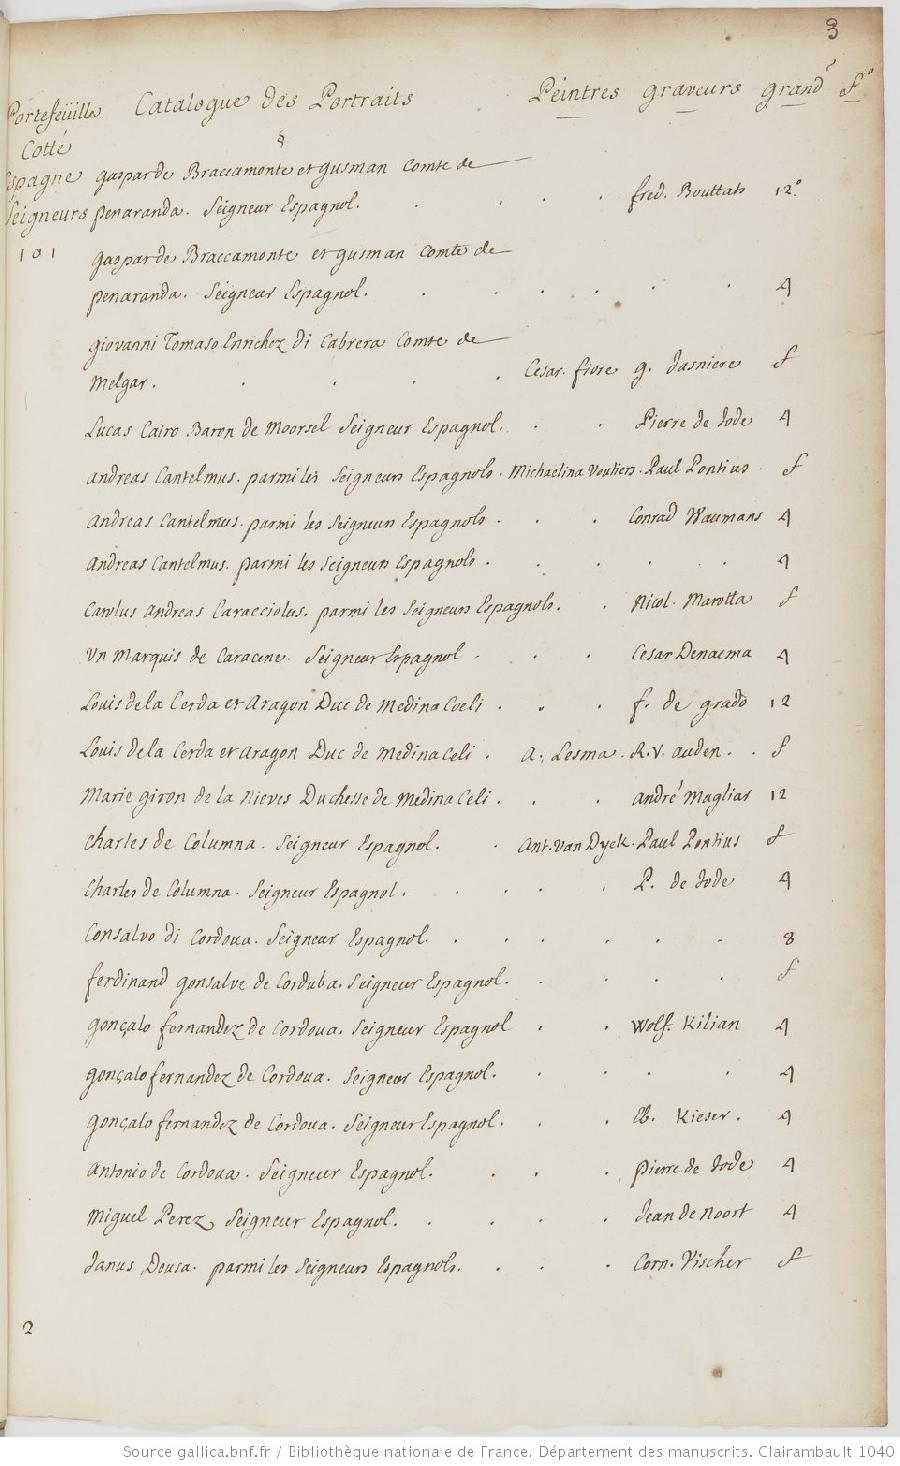 3
Portefeüille Catalogue des Portraits Peintres graveurs grandr fo
Cotté §
Espagne gasparde Braccamonte et gusman Comte de
Seigneurs penaranda. Seigneur Espagnol. fred. Bouttats 12o
101 gasparde Braccamonte et gusman Comte de
penaranda. Seigneur Espagnol. 4
giovanni Tomaso Enrichez di Cabrera Comte de
Melgar. Cesar. fiore g. Tasniere f
Lucas Cairo Baron de Moorsel Seigneur Espagnol. Pierre de Jode 4
Andreas Cantelmus. parmi les Seigneurs Espagnols. Michaelina Voutiers. Paul Pontius f
Andreas Cantelmus. parmi les Seigneurs Espagnols. Conrad Waumans 4
Andreas Cantelmus. parmi les Seigneurs Espagnols. 4
Carolus Andreas Caracciolus. parmi les Seigneurs Espagnols. Nicol. Marotta f
Un Marquis de Caracene. Seigneur Espagnol. Cesar Denaema 4
Louis dela Cerda et Aragon Duc de Medina Coeli. f. de grado 12
Louis dela Cerda et Aragon Duc de Medina Celi. A. Lesma. R. V. auden. f
Marie giron de la Nieves Duchesse de Medina Celi. André Magliar 12
Charles de Columna. Seigneur Espagnol. Ant. van Dyck. Paul Pontius f
Charles de Columna. Seigneur Espagnol. P. de Jode 4
Consalvo di Cordoua. Seigneur Espagnol. 8
ferdinand gonsalve de Corduba. Seigneur Espagnol. f
gonçalo fernandez de Cordoua. Seigneur Espagnol. Wolf. Kilian 4
gonçalo fernandez de Cordoua. Seigneur Espagnol. 4
gonçalo fernandez de Cordoua. Seigneur Espagnol. Eb. Kieser. 4
Antonio de Cordoua. Seigneur Espagnol. pierre de Jode 4
Miguel Perez, Seigneur Espagnol. Jean de Noort 4
Janus Dousa. parmi les Seigneurs Espagnols. Corn. Vischer f
2
Source gallica.bnf.fr / Bibliothèque nationale de France. Département des manuscrits. Clairambault 1040